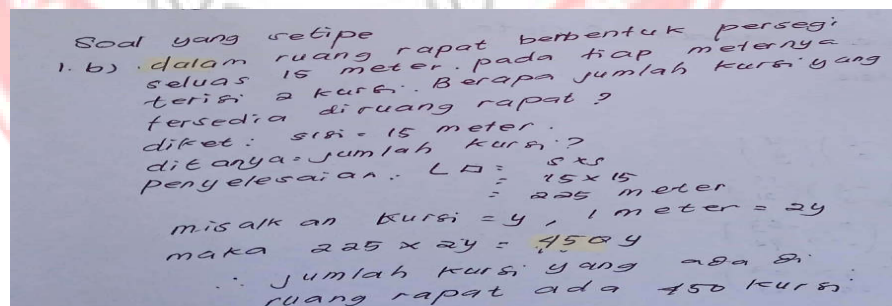 Soal yang setipe
1. b) . dalam ruang rapat berbentuk persegi
seluas 15 meter. pada tiap meternya
terisi 2 kursi. Berapa jumlah kursi yang
tersedia diruang rapat ?
diket : sisi = 15 meter.
ditanya = jumlah kursi ?
penyelesaian : L □ = s x s
= 15 x 15
= 225 meter
misalkan kursi = y , 1 meter = 2y
maka 225 x 2y = 450 y
∴ jumlah kursi yang ada di
ruang rapat ada 450 kursi